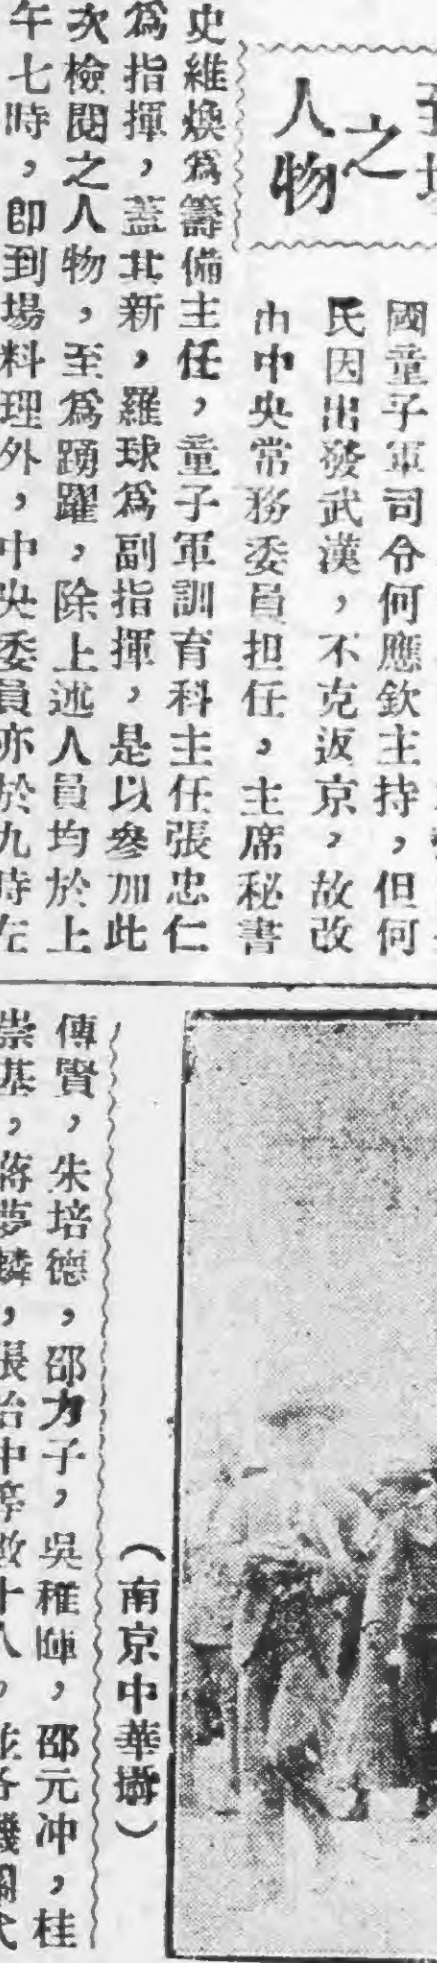 之
人物
國童子軍司令何應欽主持，但何
民因出發武漢，不克返京，故改
由中央常務委員担任，主席秘書
史維煥為籌備主任，童子軍訓育科主任張忠仁
為指揮，蓋其新，羅球為副指揮，是以參加此
次檢閱之人物，至為踴躍，除上述人員均於上
午七時，即到場料理外，中央委員亦於九時左
（南京中華攝）
傳賢，朱培德，邵力子，吳稚暉，邵元冲，桂
崇基，蔣夢麟，張治中等數十人，並各機關代